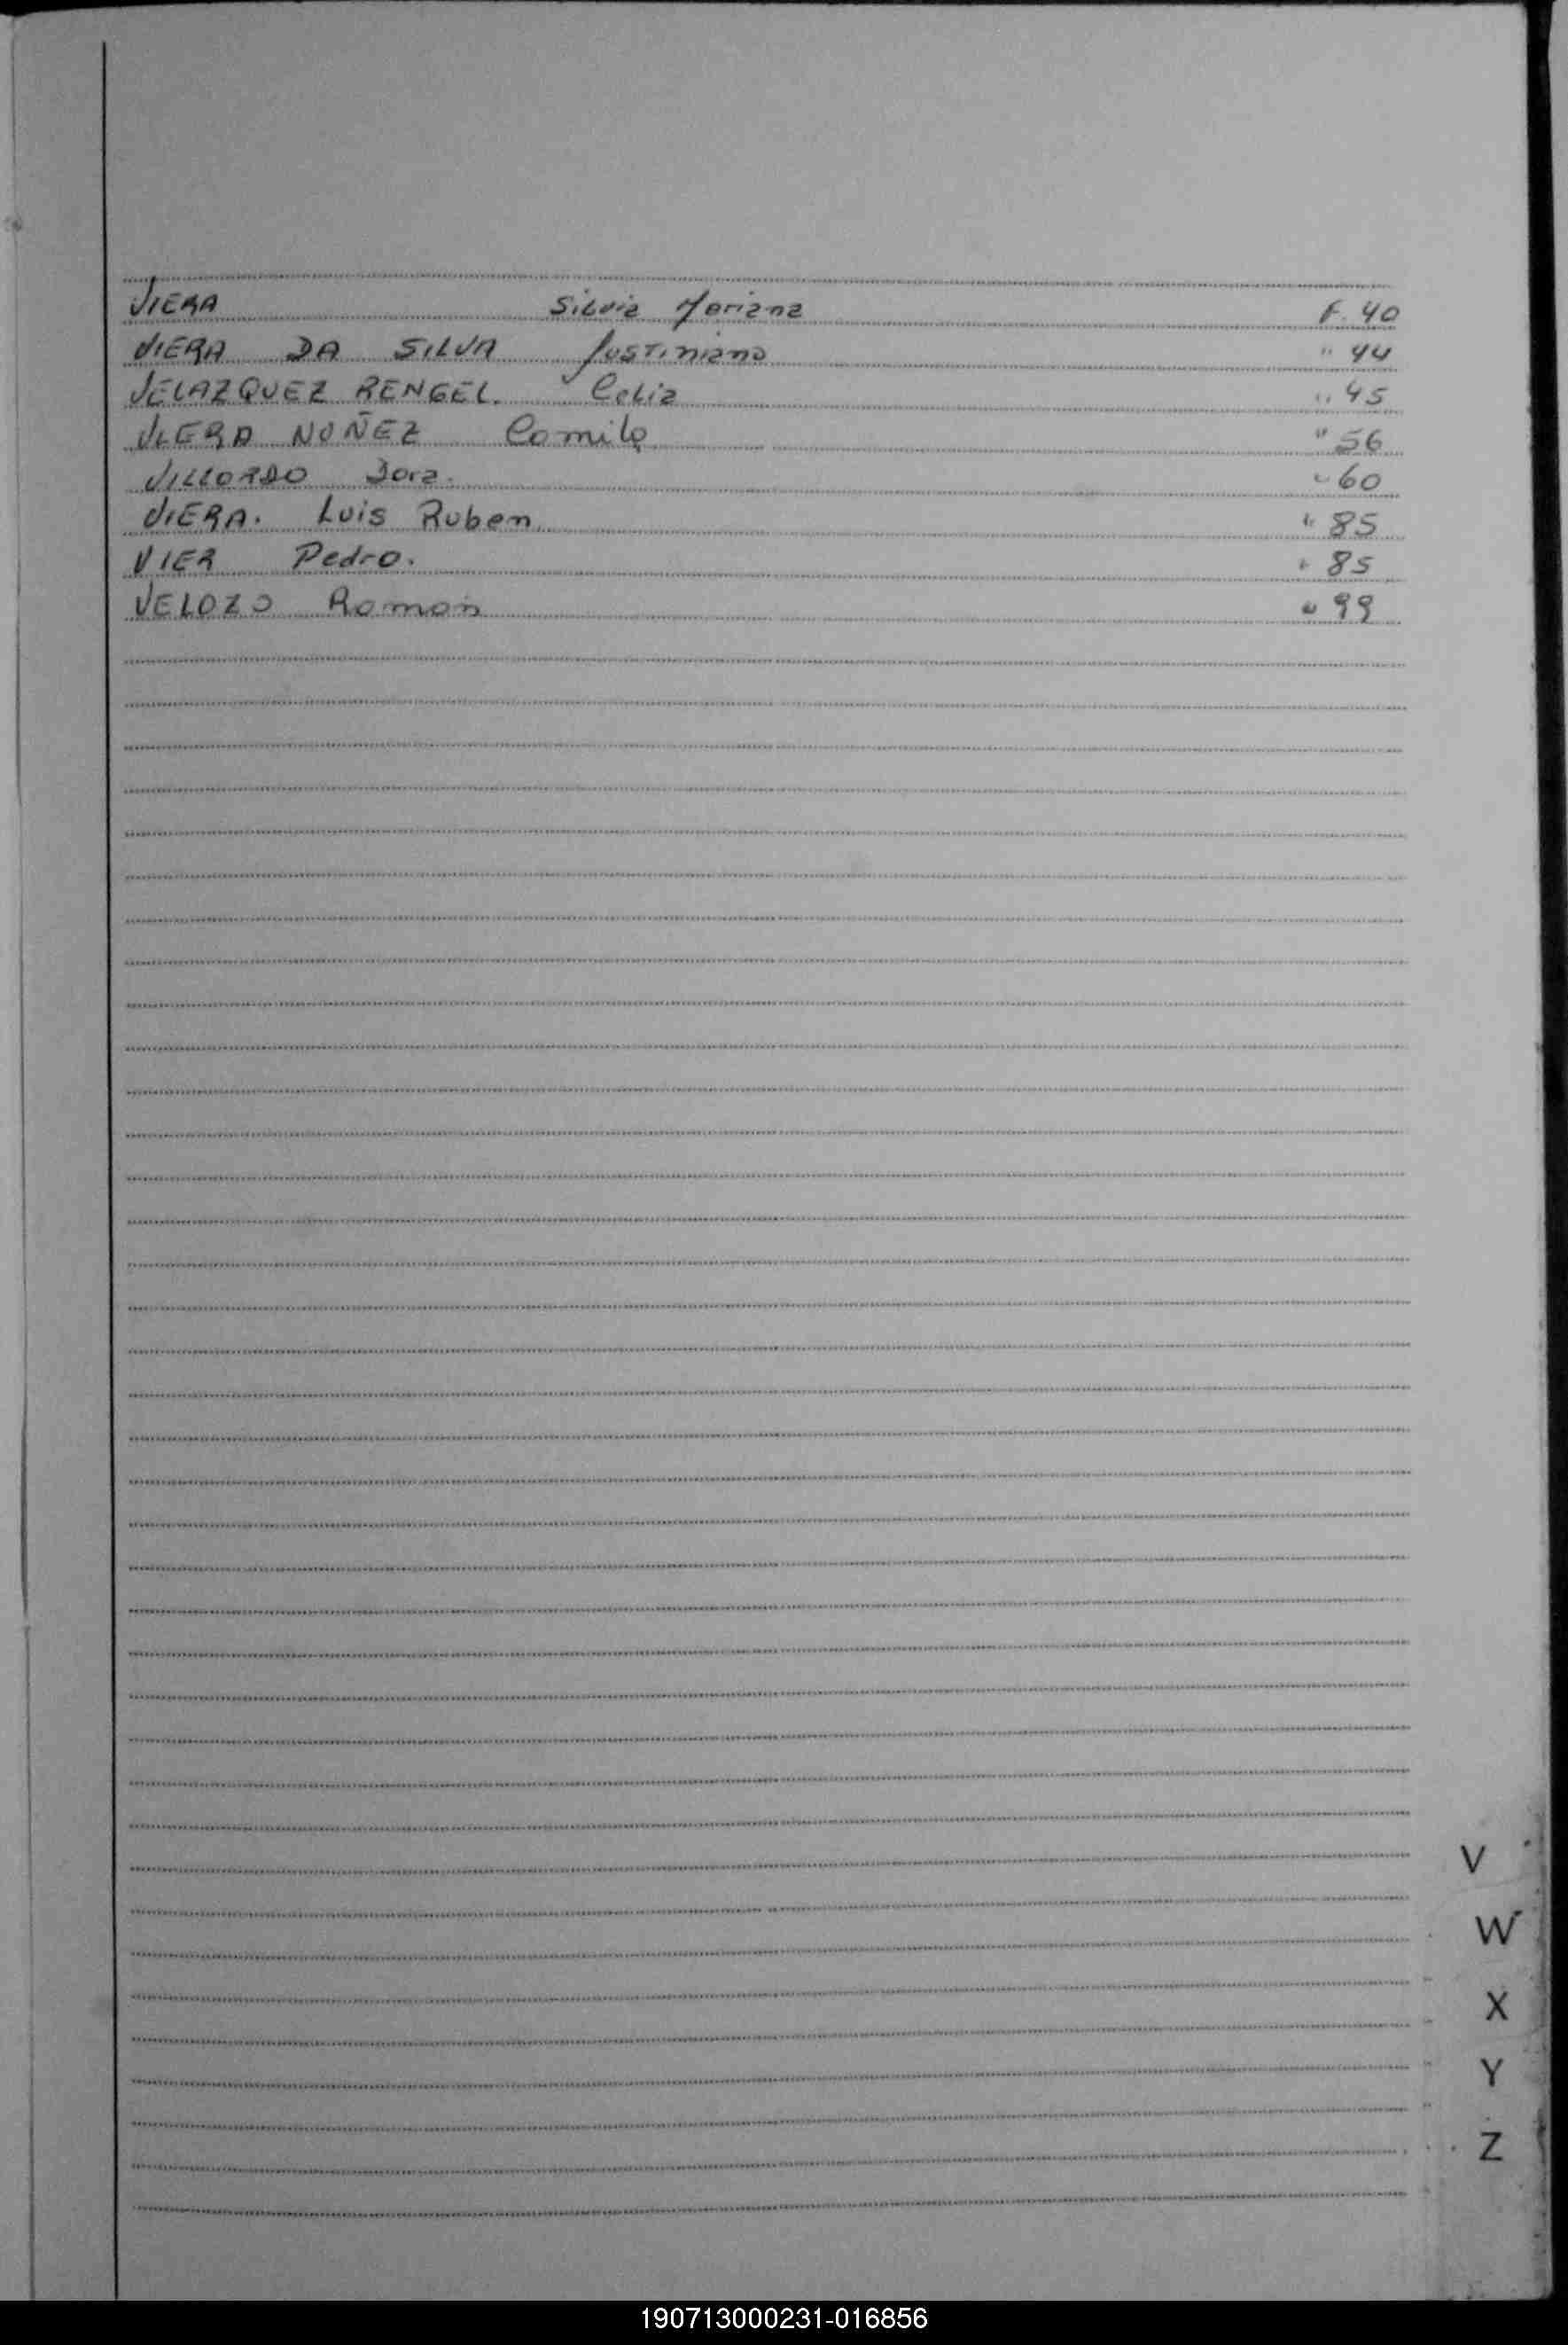 VIERA Silvia Mariana F. 40
VIERA DA SILVA Justiniano " 44
VELAZQUEZ RENGEL. Celia " 45
VIERA NUÑEZ Camilo " 56
VILLORDO Dora. " 60
VIERA. Luis Ruben " 85
VIER Pedro. " 85
VELOZO Ramon " 99
V
W
X
Y
Z
190713000231-016856